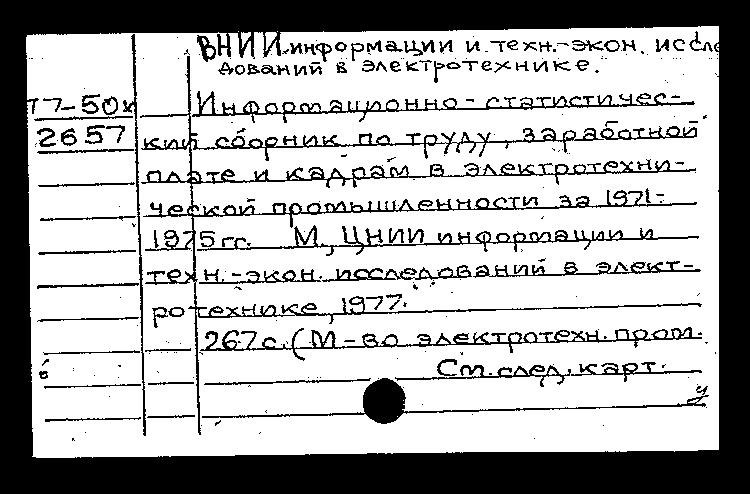 ВНИИ информации и техн.-экон. иссле
дований в электротехнике.
Т7-50к
2657
Информационно-статистичес-
кий сборник по труду, заработной
плате и кадрам в электротехни-
ческой промышленности за 1971-
1975гг. М., ЦНИИ информации и
техн.-экон. исследований в элект-
ротехнике, 1977.
267с. (М-во электротехн. пром.
См. след. карт.